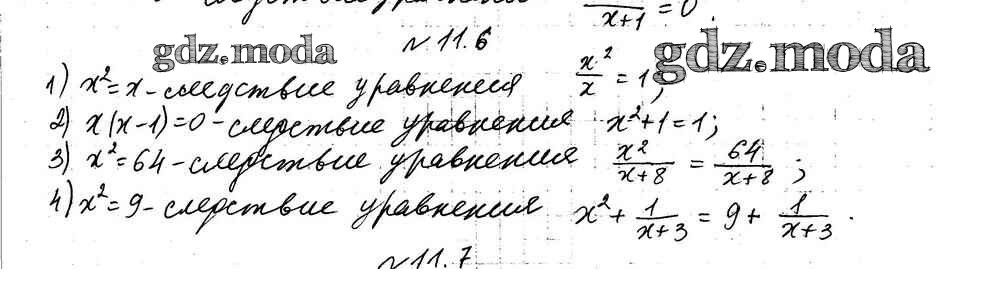 следствие уравнения x+1 = 0.
№ 11.6
gdz.moda gdz.moda
1) x²=x - следствие уравнения x²/x = 1;
2) x(x-1)=0 - следствие уравнения x²+1=1;
3) x²=64 - следствие уравнения x²/(x+8) = 64/(x+8);
4) x²=9 - следствие уравнения x² + 1/(x+3) = 9 + 1/(x+3).
№ 11.7